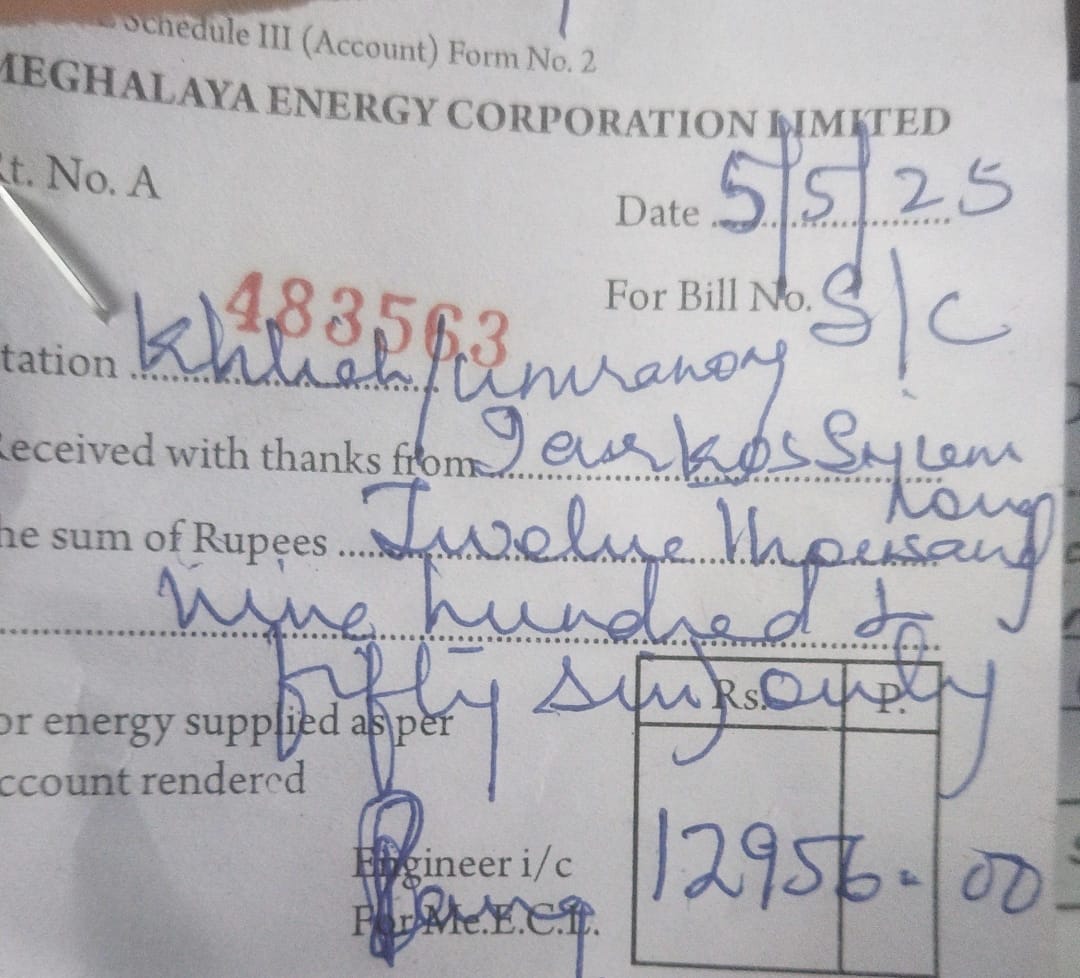 Schedule III (Account) Form No. 2
MEGHALAYA ENERGY CORPORATION LIMITED
Rt. No. A
Date 5/5/25
483563
For Bill No. S/C
tation Khlieh Umranong
Received with thanks from
he sum of Rupees Twelve thousand
nine hundred &
fifty six only
Rs. P.
or energy supplied as per
ccount rendered
12956 - 00
Engineer i/c
For Me.E.C.L.